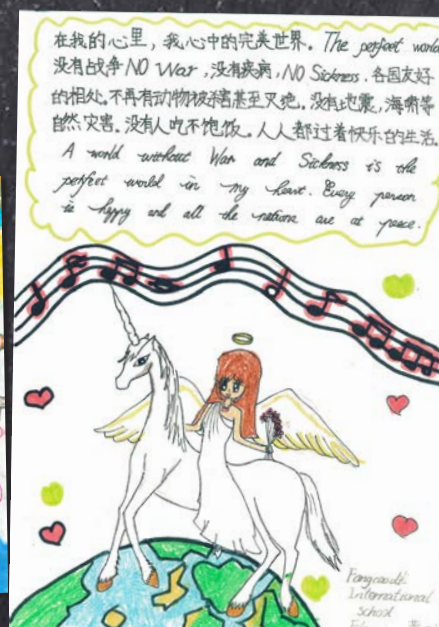 在我的心里，我心中的完美世界。The perfect world
没有战争NO War，没有疾病，NO Sickness。各国友好
的相处。不再有动物被杀害甚至灭绝。没有地震，海啸等
自然灾害。没有人吃不饱饭。人人都过着快乐的生活。
A world without War and Sickness is the
perfect world in my heart. Every person
is happy and all the nations are at peace.
International
School